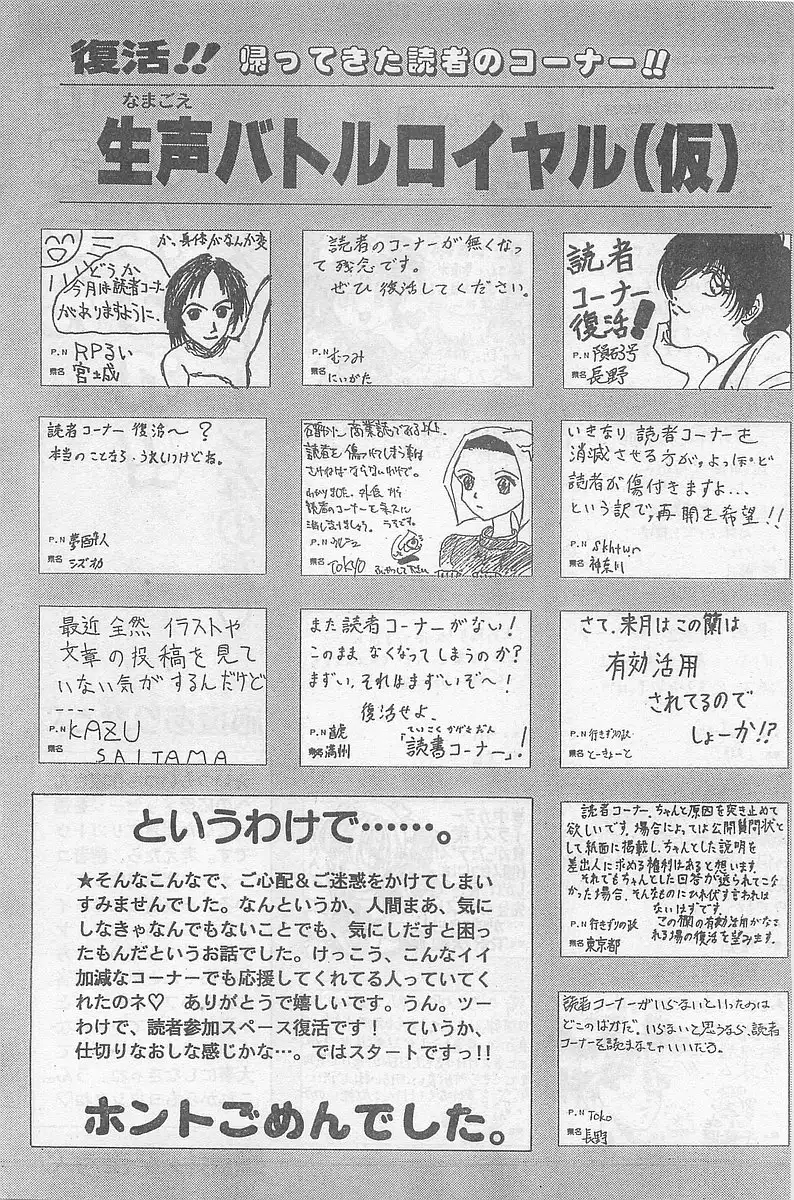 復活!! 帰ってきた読者のコーナー!!
なまごえ
生声バトルロイヤル(仮)
か、身体がなんか変
どうか
今月は読者コーナー
がありますように、
P.N RPるい
県名 宮城
読者のコーナーが無くなっ
て残念です。
ぜひ復活してください。
P.N むつみ
県名 にいがた
読者
コーナー
復活!
P.N
県名 長野
読者コーナー復活〜?
本当のことなら、うれしいけどね。
P.N
県名 シズオカ
商業誌である以上、
読者を傷つけてしまう事は
さけねばならないわけで。
読者のコーナーを
P.N
県名 TOKYO
いきなり読者コーナーを
消滅させる方が、よっぽど
読者が傷付きますよ...
という訳で、再開を希望!!
P.N
県名 神奈川
最近全然イラストや
文章の投稿を見て
いない気がするんだけど
----
P.N KAZU
県名 SAITAMA
また読者コーナーがない!
このままなくなってしまうのか?
まずい、それはまずいぞ〜!
復活せよ、
ていこくかがきだん
「読書コーナー」!
P.N
県名 満州
さて、来月はこの蘭は
有効活用
されてるので
しょーか!?
P.N 行きずりの政
県名 とーきょーと
読者コーナー、ちゃんと原因を突き止めて
欲しいです。場合によっては公開質問状と
して紙面に掲載し、ちゃんとした説明を
差出人に求める権利はあると想います。
それでもちゃんとした回答が送られてこな
かった場合、そんなものにひれ伏す言われは
ないはずです。
この欄の有効活用がなさ
れる場の復活を望みます。
P.N 行きずりの政
県名 東京都
読者コーナーがいらないといったのは
どこのばかだ。いらないと思うなら、読者
コーナーを読まなきゃいいだろ。
P.N Toko
県名 長野
というわけで……。
★そんなこんなで、ご心配&ご迷惑をかけてしまい
すみませんでした。なんというか、人間まあ、気に
しなきゃなんでもないことでも、気にしだすと困っ
たもんだというお話でした。けっこう、こんなイイ
加減なコーナーでも応援してくれてる人っていてく
れたのネ♡ ありがとうで嬉しいです。うん。ツー
わけで、読者参加スペース復活です! ていうか、
仕切りなおしな感じかな…。ではスタートですっ!!
ホントごめんでした。